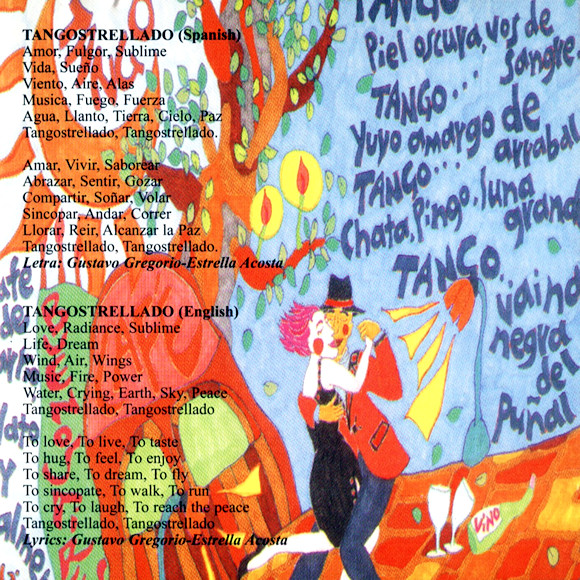 TANGOSTRELLADO (Spanish)
Amor, Fulgor, Sublime
Vida, Sueño
Viento, Aire, Alas
Musica, Fuego, Fuerza
Agua, Llanto, Tierra, Cielo, Paz
Tangostrellado, Tangostrellado.
Amar, Vivir, Saborear
Abrazar, Sentir, Gozar
Compartir, Soñar, Volar
Sincopar, Andar, Correr
Llorar, Reir, Alcanzar la Paz
Tangostrellado, Tangostrellado.
Letra: Gustavo Gregorio-Estrella Acosta
TANGOSTRELLADO (English)
Love, Radiance, Sublime
Life, Dream
Wind, Air, Wings
Music, Fire, Power
Water, Crying, Earth, Sky, Peace
Tangostrellado, Tangostrellado
To love, To live, To taste
To hug, To feel, To enjoy
To share, To dream, To fly
To sincopate, To walk, To run
To cry, To laugh, To reach the peace
Tangostrellado, Tangostrellado
Lyrics: Gustavo Gregorio-Estrella Acosta
TANGO
Piel oscura, vos de
sangre.
TANGO...
Yuyo amargo de
arrabal
TANGO...
Chata, Pingo, luna
grande
TANGO..
vaina
negra
del
Puñal
VINO